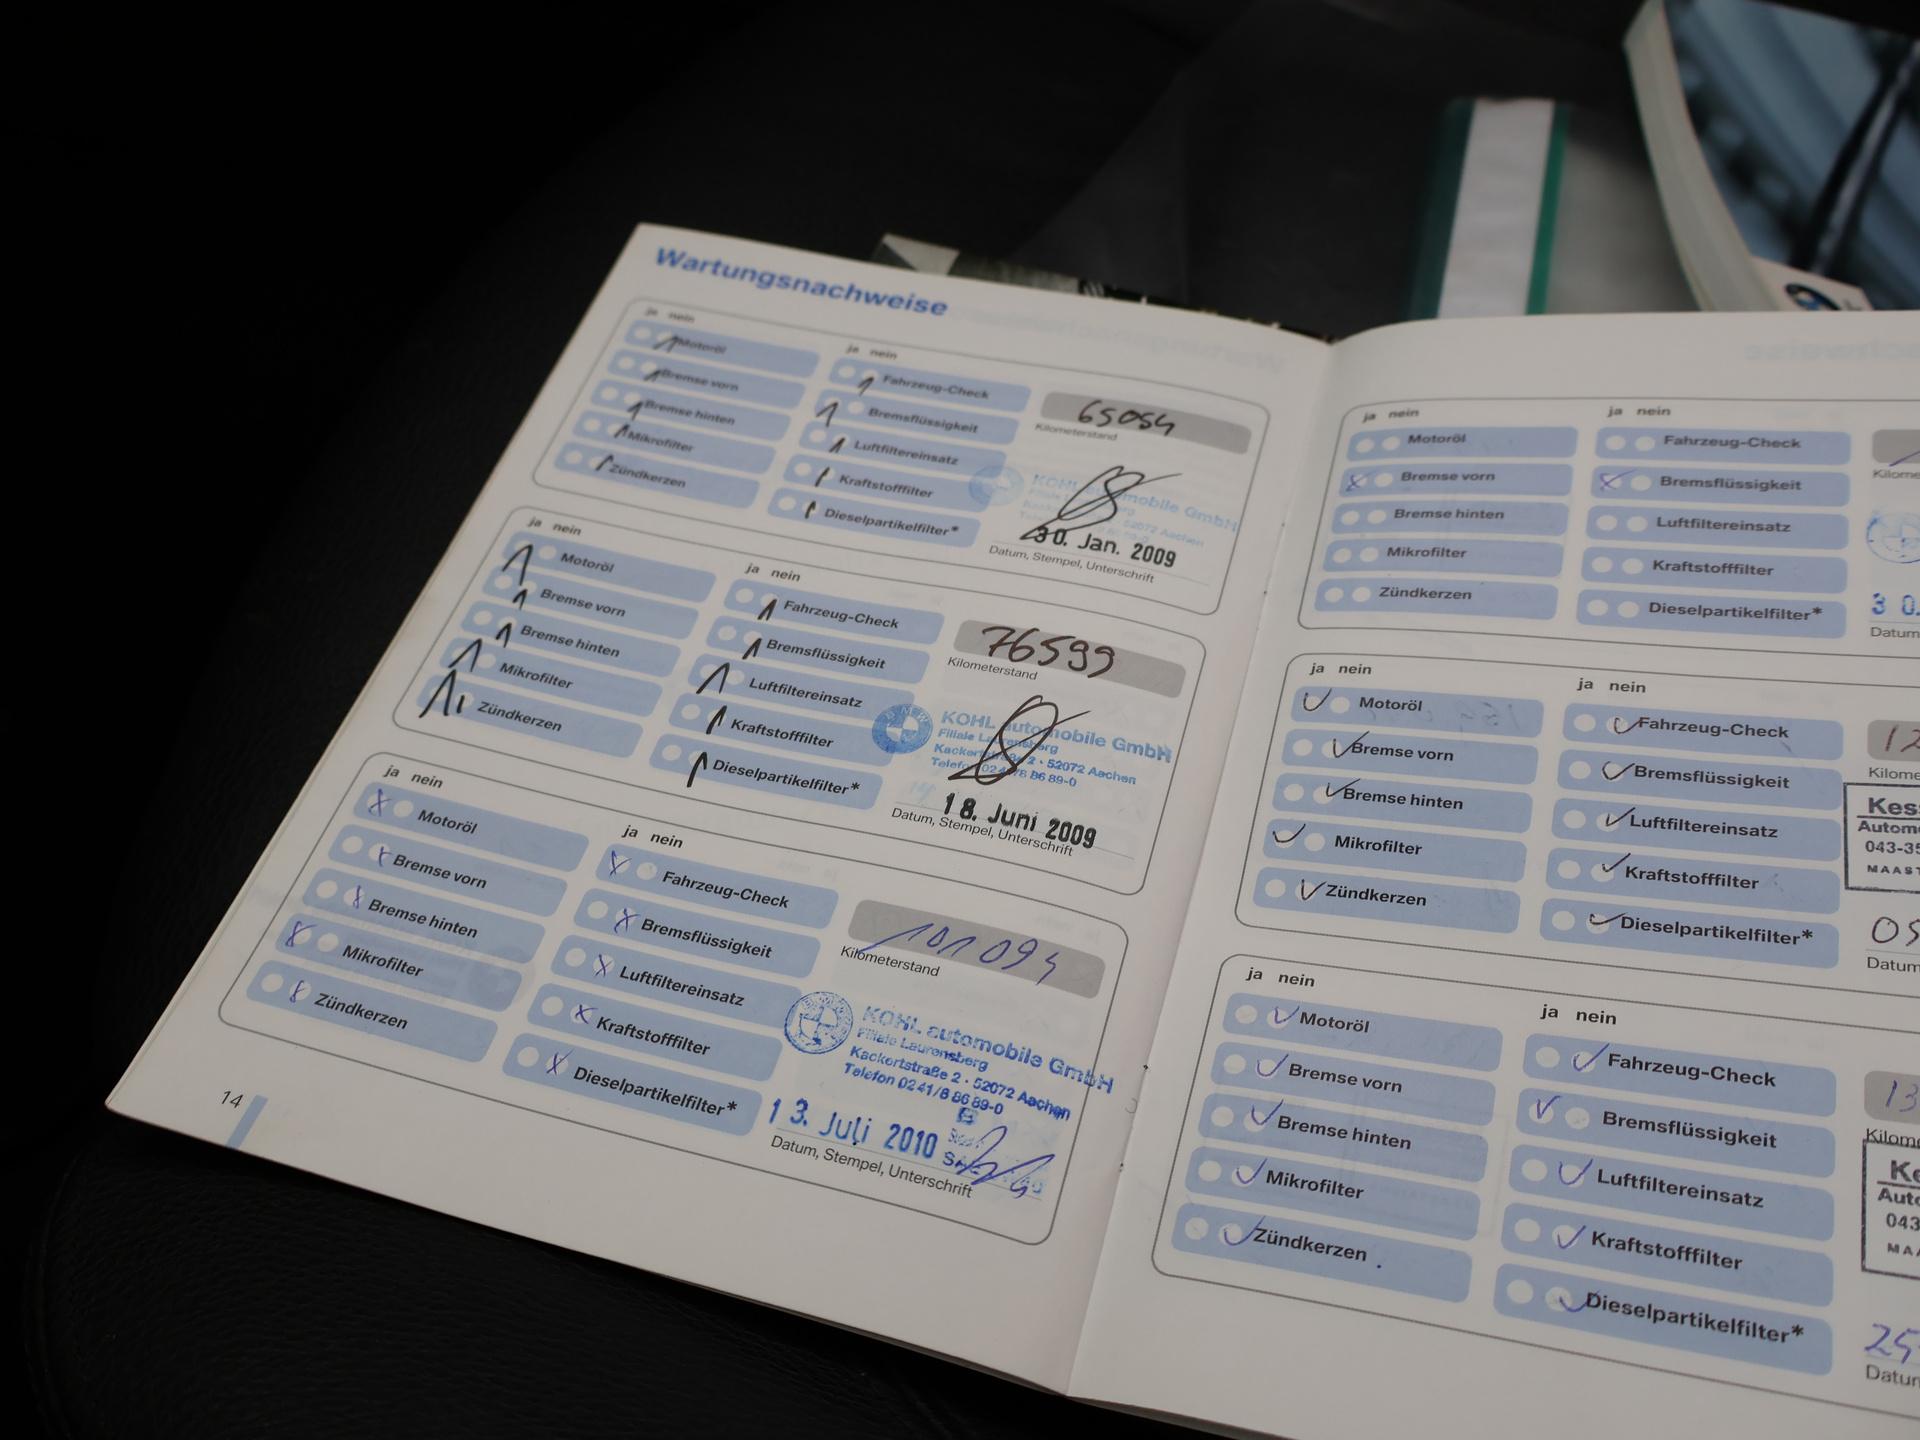 Wartungsnachweise
ja nein
Motoröl
Bremse vorn
Bremse hinten
Mikrofilter
Zündkerzen
ja nein
Fahrzeug-Check
Bremsflüssigkeit
Luftfiltereinsatz
Kraftstofffilter
Dieselpartikelfilter*
65054
Kilometerstand
KOHL automobile GmbH
52072 Aachen
30. Jan. 2009
Datum, Stempel, Unterschrift
ja nein
Motoröl
Bremse vorn
Bremse hinten
Mikrofilter
Zündkerzen
ja nein
Fahrzeug-Check
Bremsflüssigkeit
Luftfiltereinsatz
Kraftstofffilter
Dieselpartikelfilter*
76599
Kilometerstand
BMW
KOHL automobile GmbH
Filiale Laurensberg
Kackertstraße 2 · 52072 Aachen
Telefon 0241/8 86 89-0
18. Juni 2009
Datum, Stempel, Unterschrift
ja nein
Motoröl
Bremse vorn
Bremse hinten
Mikrofilter
Zündkerzen
ja nein
Fahrzeug-Check
Bremsflüssigkeit
Luftfiltereinsatz
Kraftstofffilter
Dieselpartikelfilter*
101094
Kilometerstand
KOHL automobile GmbH
Filiale Laurensberg
Kackertstraße 2 · 52072 Aachen
Telefon 0241/8 86 89-0
13. Juli 2010
Datum, Stempel, Unterschrift
14
ja nein
Motoröl
Bremse vorn
Bremse hinten
Mikrofilter
Zündkerzen
ja nein
Fahrzeug-Check
Bremsflüssigkeit
Luftfiltereinsatz
Kraftstofffilter
Dieselpartikelfilter*
Kilome
30.
Datum
ja nein
Motoröl
Bremse vorn
Bremse hinten
Mikrofilter
Zündkerzen
ja nein
Fahrzeug-Check
Bremsflüssigkeit
Luftfiltereinsatz
Kraftstofffilter
Dieselpartikelfilter*
12
Kilome
Kess
Automo
043-35
MAAST
05
Datum
ja nein
Motoröl
Bremse vorn
Bremse hinten
Mikrofilter
Zündkerzen
ja nein
Fahrzeug-Check
Bremsflüssigkeit
Luftfiltereinsatz
Kraftstofffilter
Dieselpartikelfilter*
13
Kilome
Ke
Auto
043
MAA
25
Datum